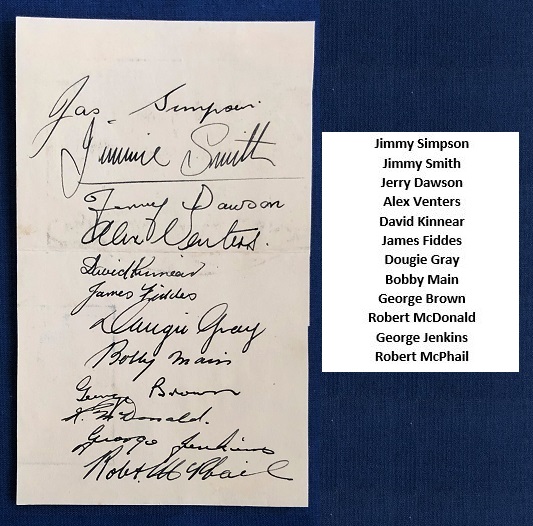 Jas. Simpson.
Jimmie Smith
Jerry Dawson
Alex Venters.
David Kinnear
James Fiddes
Dougie Gray
Bobby Main
George Brown
R. McDonald.
George Jenkins
Robt. McPhail
Jimmy Simpson
Jimmy Smith
Jerry Dawson
Alex Venters
David Kinnear
James Fiddes
Dougie Gray
Bobby Main
George Brown
Robert McDonald
George Jenkins
Robert McPhail